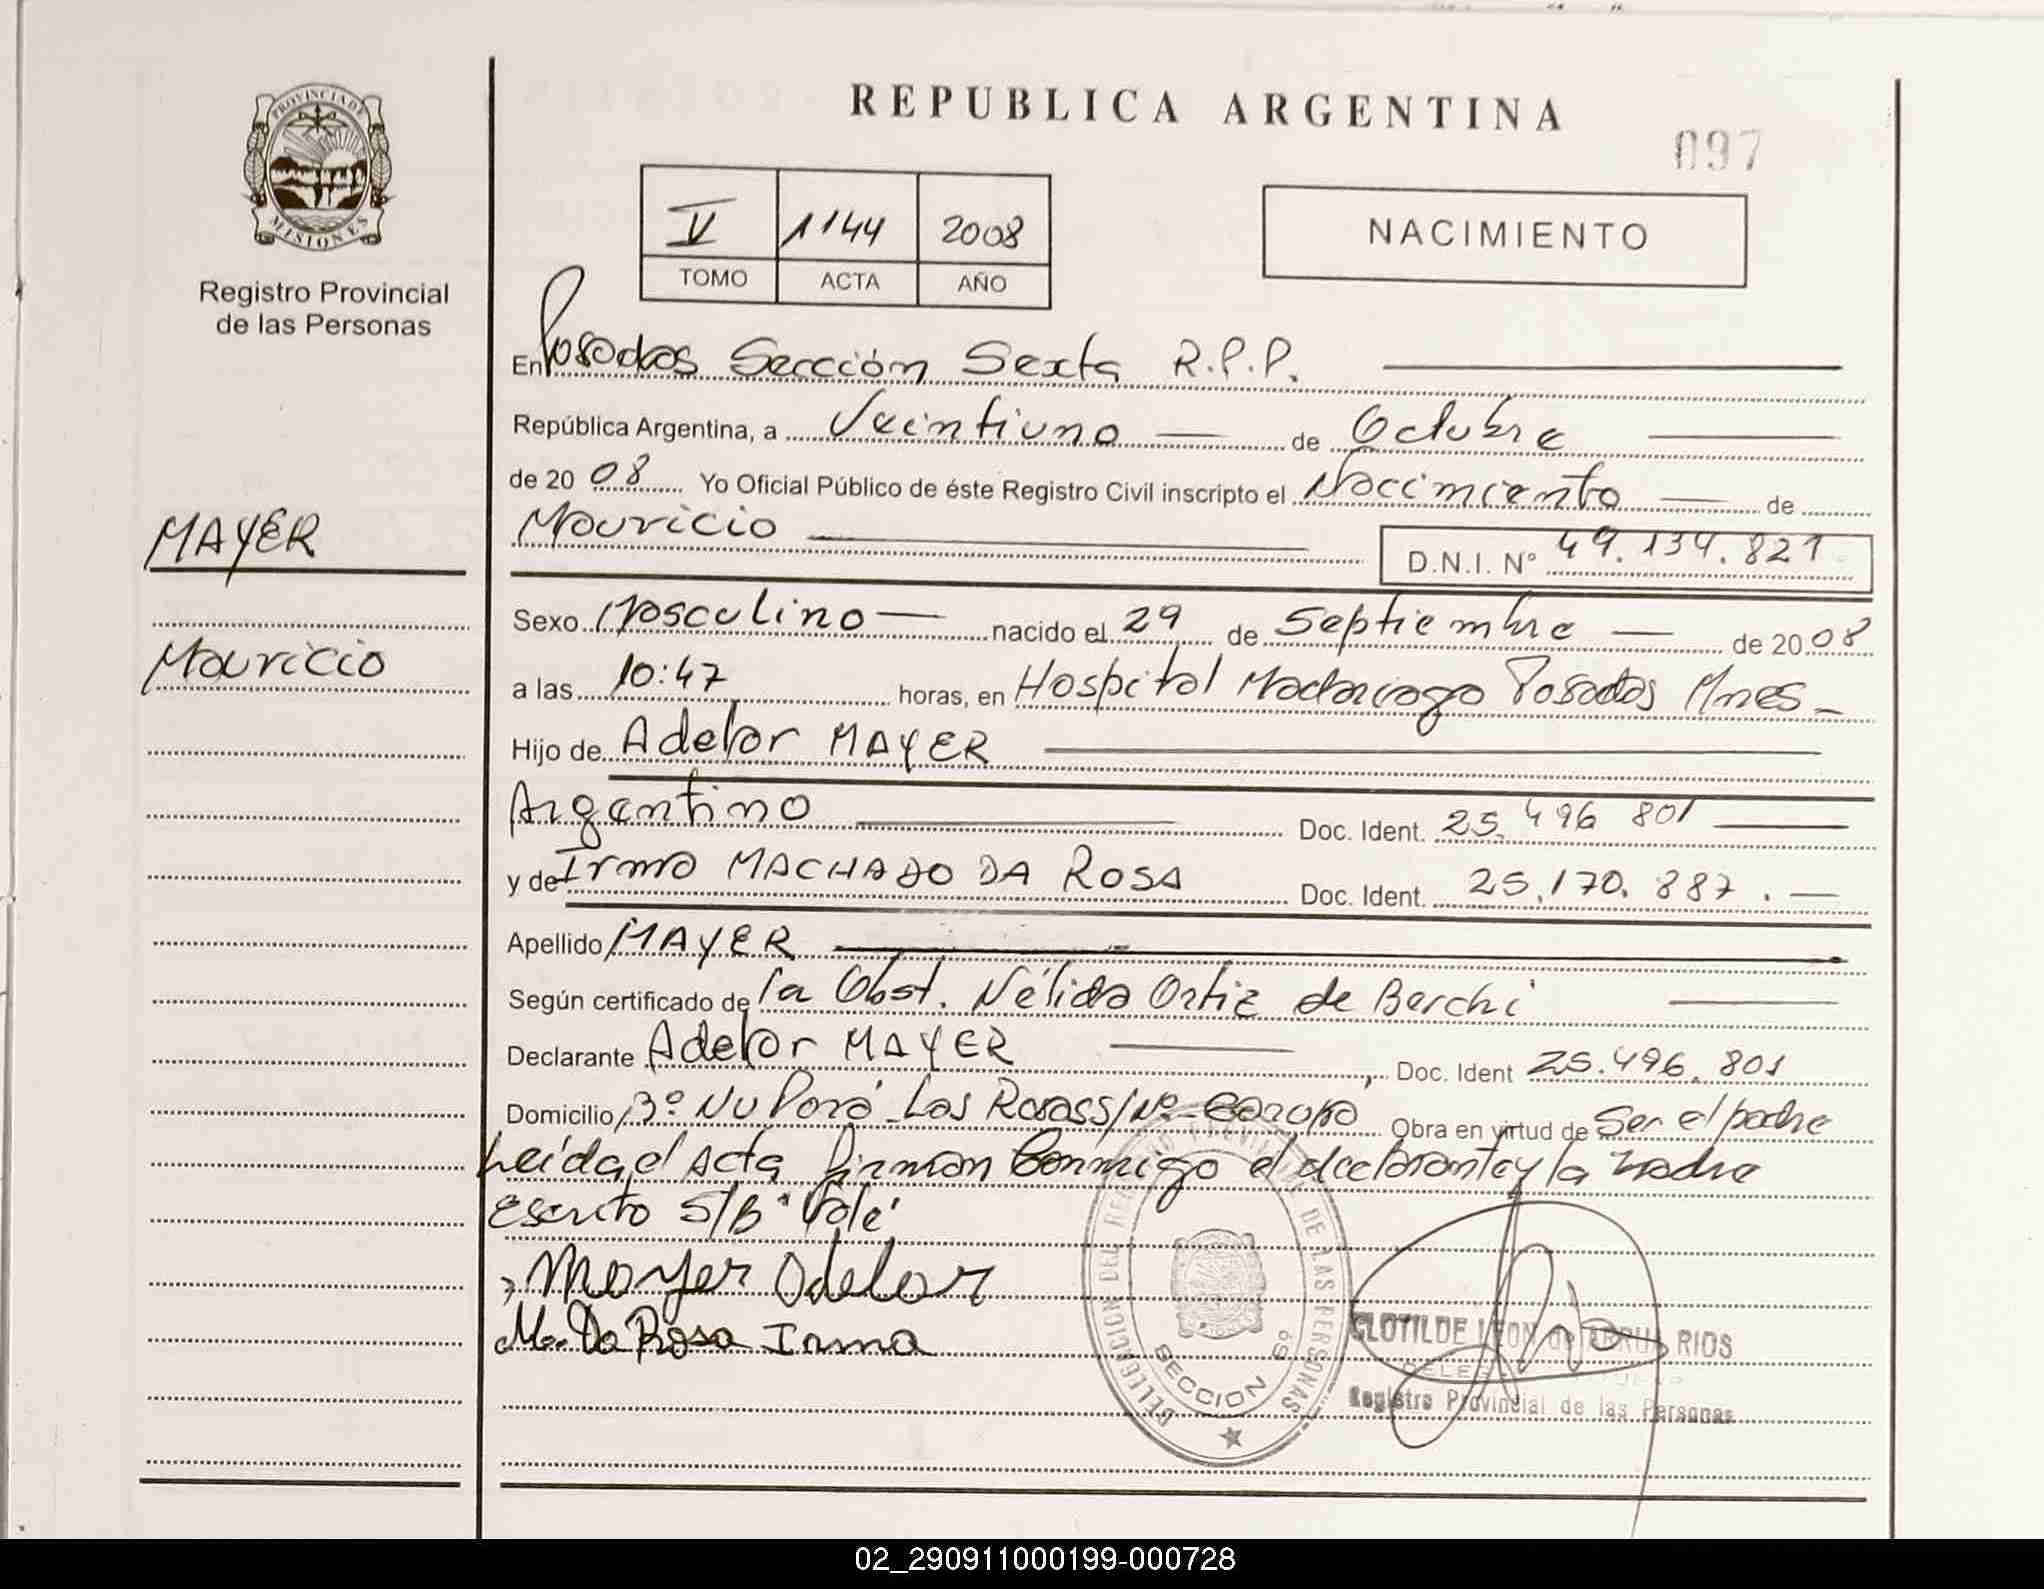 REPUBLICA ARGENTINA
097
PROVINCIA DE
MISIONES
Registro Provincial
de las Personas
V 1144 2008
TOMO ACTA AÑO
NACIMIENTO
En Posadas Sección Sexta R.P.P.
República Argentina, a Veintiuno de Octubre
de 2008 Yo Oficial Público de éste Registro Civil inscripto el Nacimiento de
Mauricio D.N.I. Nº 49.134.821
MAYER
Mauricio
Sexo Masculino nacido el 29 de Septiembre de 2008
a las 10:47 horas, en Hospital Madariaga Posadas Mnes
Hijo de Adelar MAYER
Argentino Doc. Ident. 25.496 801
y de Irma MACHADO DA ROSA Doc. Ident. 25.170.887.
Apellido MAYER
Según certificado de la Obst. Nélida Ortiz de Barchi
Declarante Adelar MAYER, Doc. Ident 25.496.801
Domicilio Bº Ñu Porá Las Rosas S/Nº Obra en virtud de Ser el padre
Leída el Acta firman Conmigo el declarante y la madre
Escrito S/B "Vale"
Mayer Odelar
M. Da Rosa Irma
DELEGACION DEL REGISTRO PROVINCIAL DE LAS PERSONAS
SECCION 6º
CLOTILDE LEON de RIOS
Registro Provincial de las Personas
02_290911000199-000728